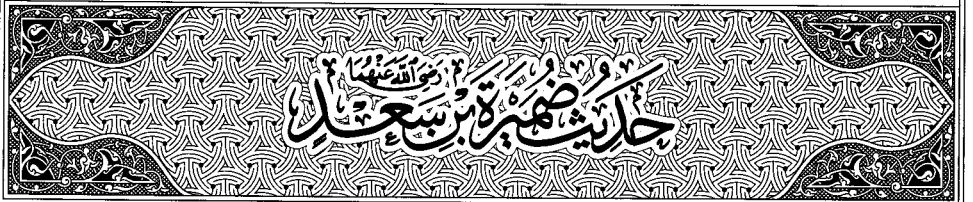 حَدِيثُ ضُمَيْرَةَ بْنِ سَعْدٍ رَضِيَ اللَّهُ عَنْهُمَا